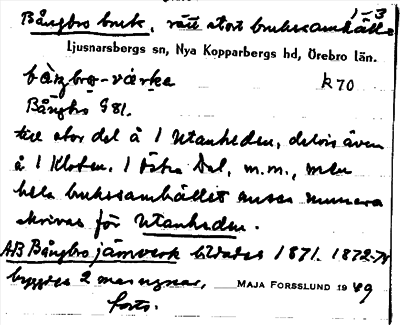 1-3
Bångbro bruk, rätt stort brukssamhälle
Ljusnarsbergs sn, Nya Kopparbergs hd, Örebro län.
bång̀brọ-vàrkẹ K 70
Bångbro G 81.
till stor del å 1 Utanheden, delvis även
å 1 Kloten. 1 Östra Dal, m.m., men
hela brukssamhället anses numera
skrivas för Utanheden.
AB Bångbro järnverk bildades 1871. 1872-74
byggdes 2 masugnar, MAJA FORSSLUND 1949
forts.